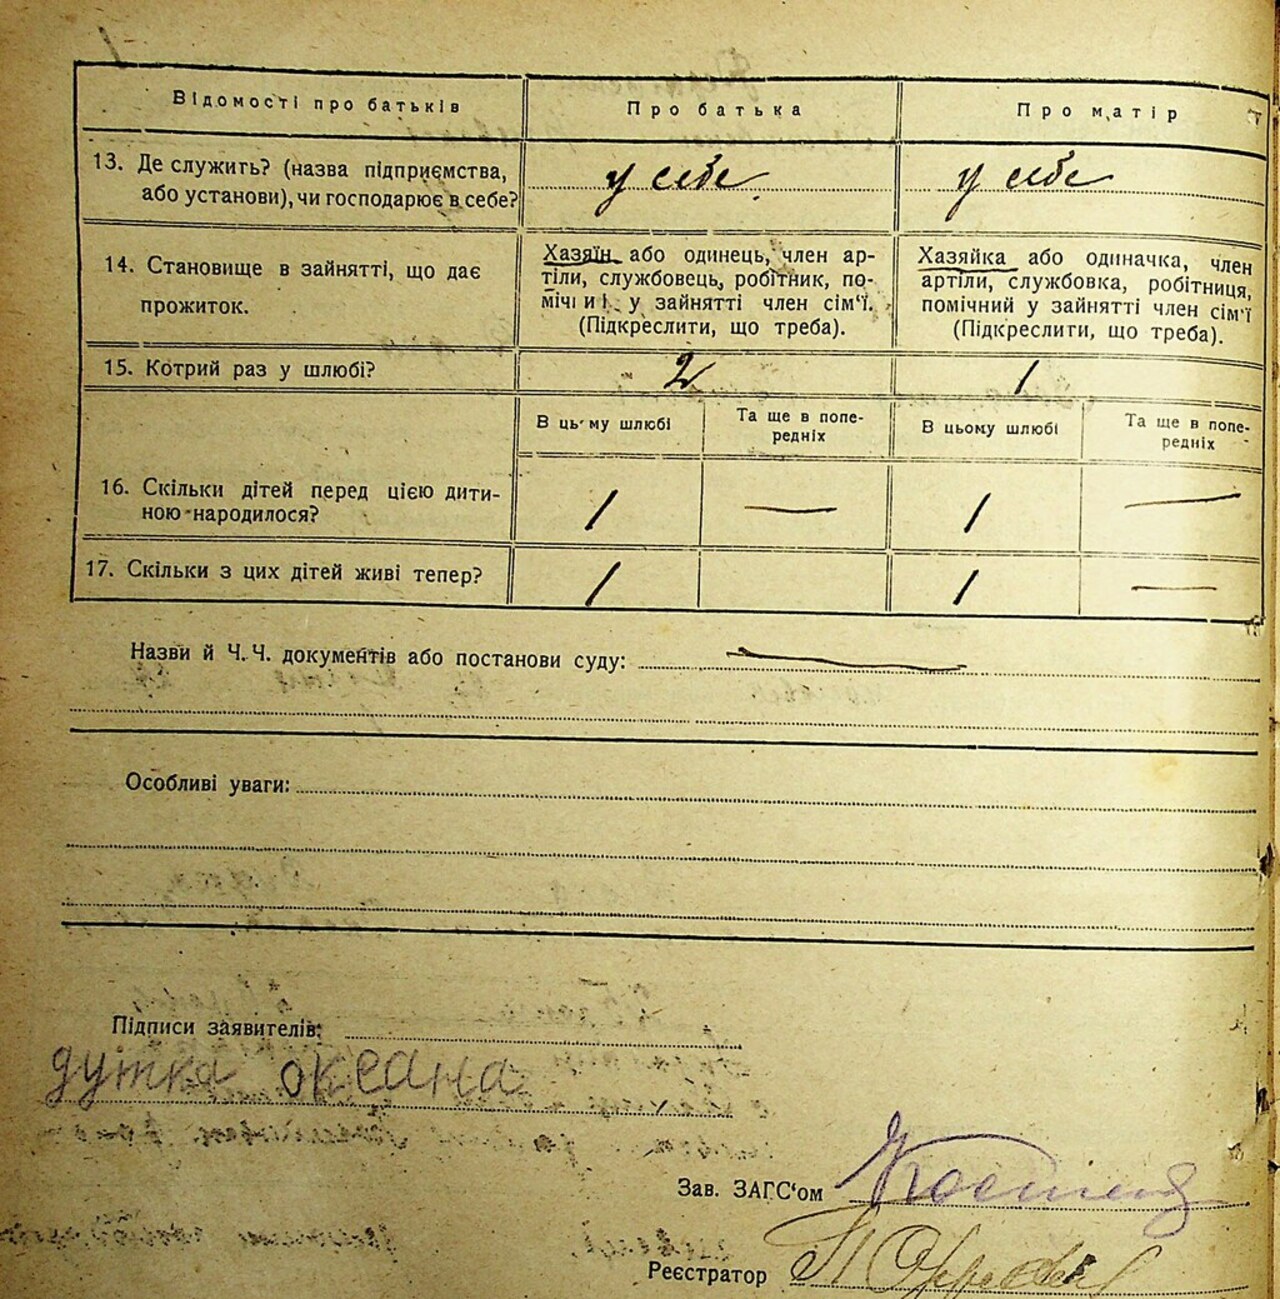 Відомості про батьків Про батька Про матір
13. Де служить? (назва підприємства, у себе у себе
або установи), чи господарює в себе?
14. Становище в зайнятті, що дає
прожиток.
Хазяїн або одинець, член ар-
тіли, службовець, робітник, по-
мічниі у зайнятті член сім'ї.
(Підкреслити, що треба).
Хазяйка або одиначка, член
артіли, службовка, робітниця,
помічний у зайнятті член сім'ї
(Підкреслити, що треба).
15. Котрий раз у шлюбі? 2 1
В цьму шлюбі Та ще в попе-
редніх
В цьому шлюбі Та ще в попе-
редніх
16. Скільки дітей перед цією дити- 1 — 1 —
ною народилося?
17. Скільки з цих дітей живі тепер? 1 1 —
Назви й Ч.Ч. документів або постанови суду: —
Особливі уваги:
Підписи заявителів:
дутка оксана
Зав. ЗАГС'ом
Реєстратор